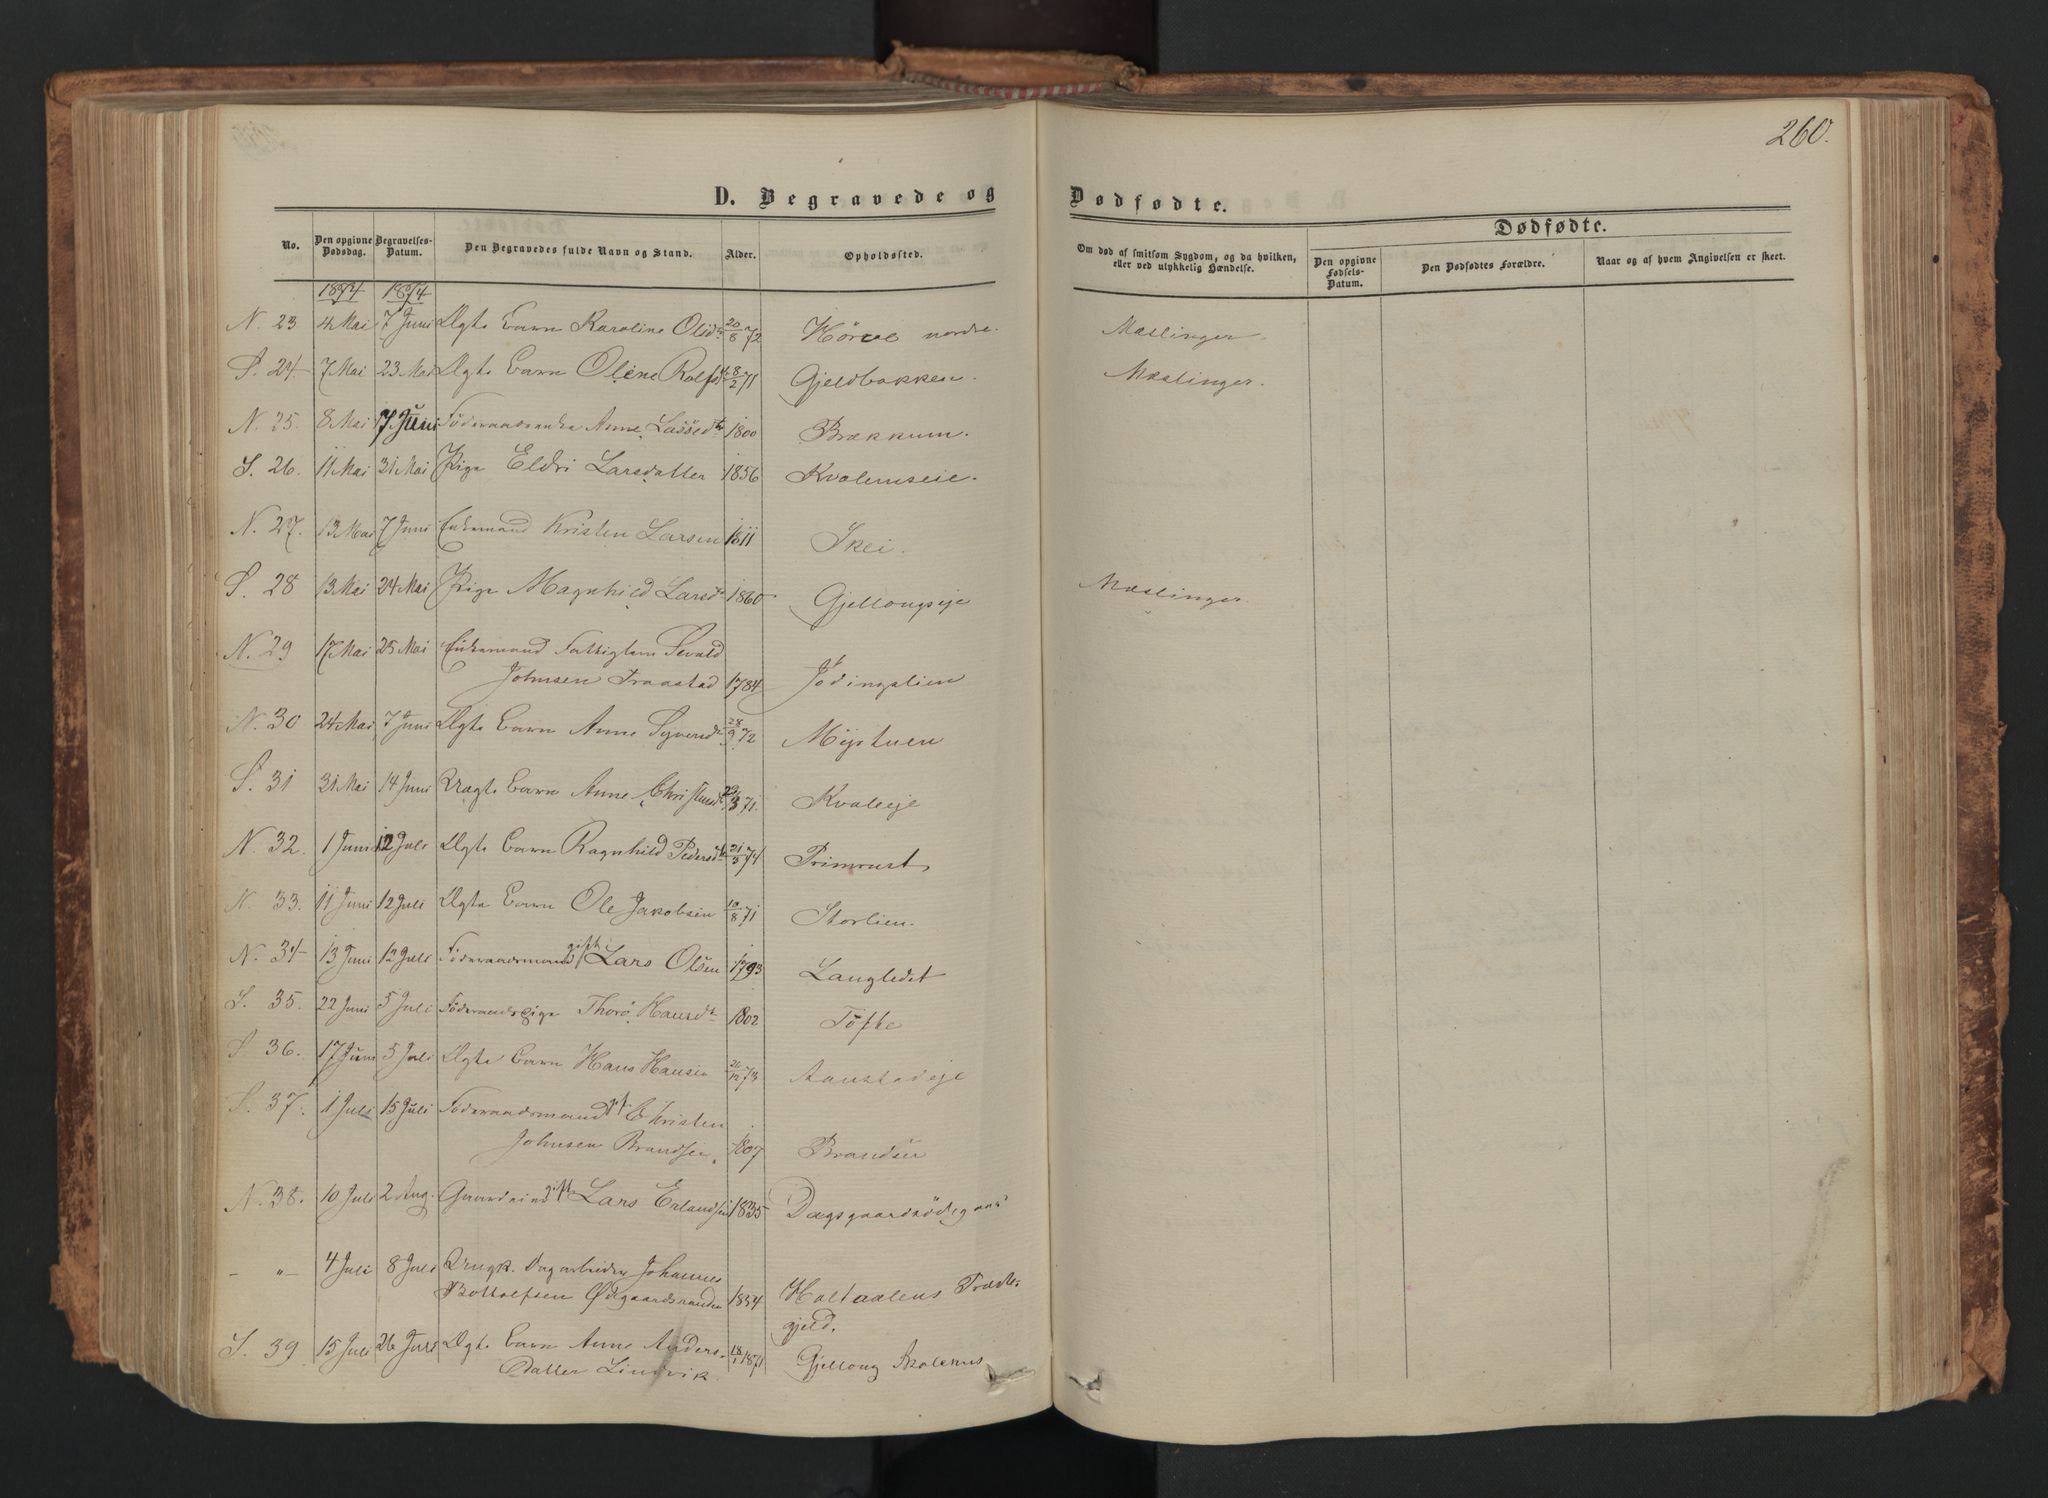 260.
D. Begravede og Dødfødte.
No. Den opgivne Dødsdag. Begravelses-Datum. Den Begravedes fulde Navn og Stand. Alder. Opholdssted. Om død af smitsom Sygdom, og da hvilken, eller ved ulykkelig Hændelse. Dødfødte. Den opgivne Fødsels-Datum. Den Dødfødtes Forældre. Naar og af hvem Angivelsen er skeet.
1874 1874
N. 23 4 Mai 7 Juni Ægte Barn Karoline Olsdtr 20/8 72 nordre. Mæslinger.
S. 24. 7 Mai 23 Mai Ægte Barn Oline Rolfsd 8/2 71 Gjeldbakken. Mæslinger.
N. 25. 8 Mai 17 Juni Föderaadsenke Anne Lassedtr 1800 Brækkum.
S. 26. 11 Mai 31 Mai Pige Eldri Larsdatter 1856 Kvalemseie.
N. 27. 13 Mai 7 Juni Enkemand Kristen Larsen 1811 Skei.
S. 28 13 Mai 24 Mai Pige Magnhild Larsdtr 1860 Gjellongseje Mæslinger
N. 29 17 Mai 25 Mai Enkemand Fattiglem Sevald
Johnsen Traastad 1784 Jödingslien
N. 30 24 Mai 7 Juni Ægte Barn Anne Syversdtr 28/9 72 Mÿstuen
S. 31 31 Mai 14 Juni Uægte Barn Anne Christensdtr 29/3 71. Kvaleeje
N. 32. 1 Juni 12 Juli Ægte Barn Ragnhild Pedersdtr 21/5 74 Primrust
N. 33. 11 Juni 12 Juli Ægte Barn Ole Jakobsen 10/8 71 Storlien.
N. 34 13 Juni 12 Juli Föderaadsmand gift Lars Olsen 1793 Langledet
S. 35. 22 Juni 5 Juli Föderaadspige Thorö Hansdtr 1802 Töfte
S. 36. 17 Juni 5 Juli Ægte Barn Hans Hansen 26/12 73 Aanstadeje
S. 37. 1 Juli 15 Juli Föderaadsmand gft Christen
Johnsen Brandsen 1807 Brandsen
N. 38. 10 Juli 2 Aug. Gaardeind gift Lars Erlandsen 1835
- " - 4 Juli 8 Juli Ungk. Dagarbeider Johannes
Bottolfsen Ødegaardsranden 1854 Holtaalens Præste-
gjeld.
S. 39 15 Juli 26 Juli Ægte Barn Anne Anders-
datter Lindvik. 18/1 1871 Gjellong